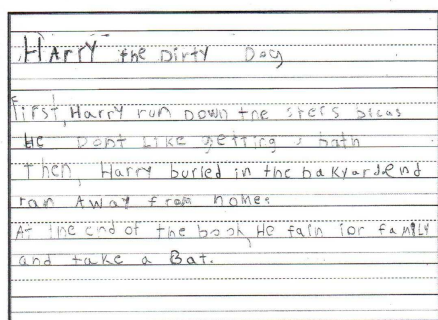 HArrY the DirtY Dog
First, Harry run Down the steps bicas
He Dont Like getting a bath
Then, Harry buried in the bakyard end
ran Away from home.
At the end of the book, He fain ior famiLY
and take a Bat.